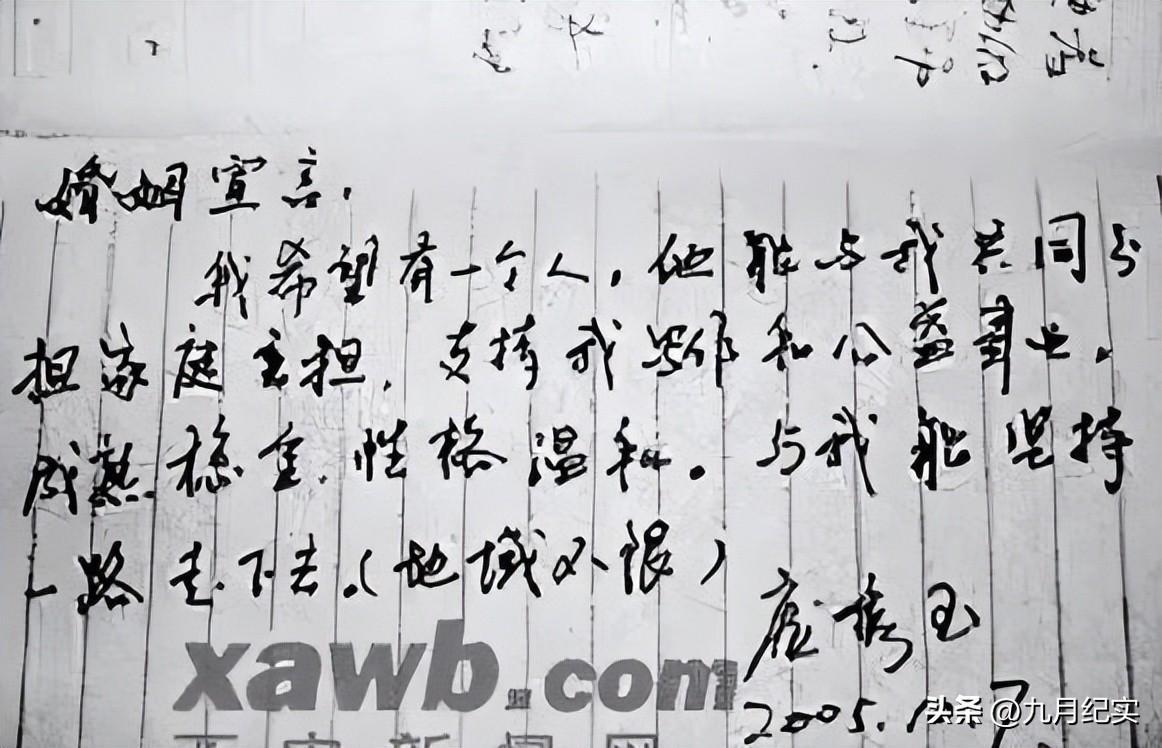 婚姻宣言.
我希望有一个人,他能与我共同分
担家庭重担,支持我写作和公益事业,
成熟稳重,性格温和。与我能坚持
一路走下去.(地域不限)
玉
2005.
xawb.com
西安新闻网
头条 @九月纪实